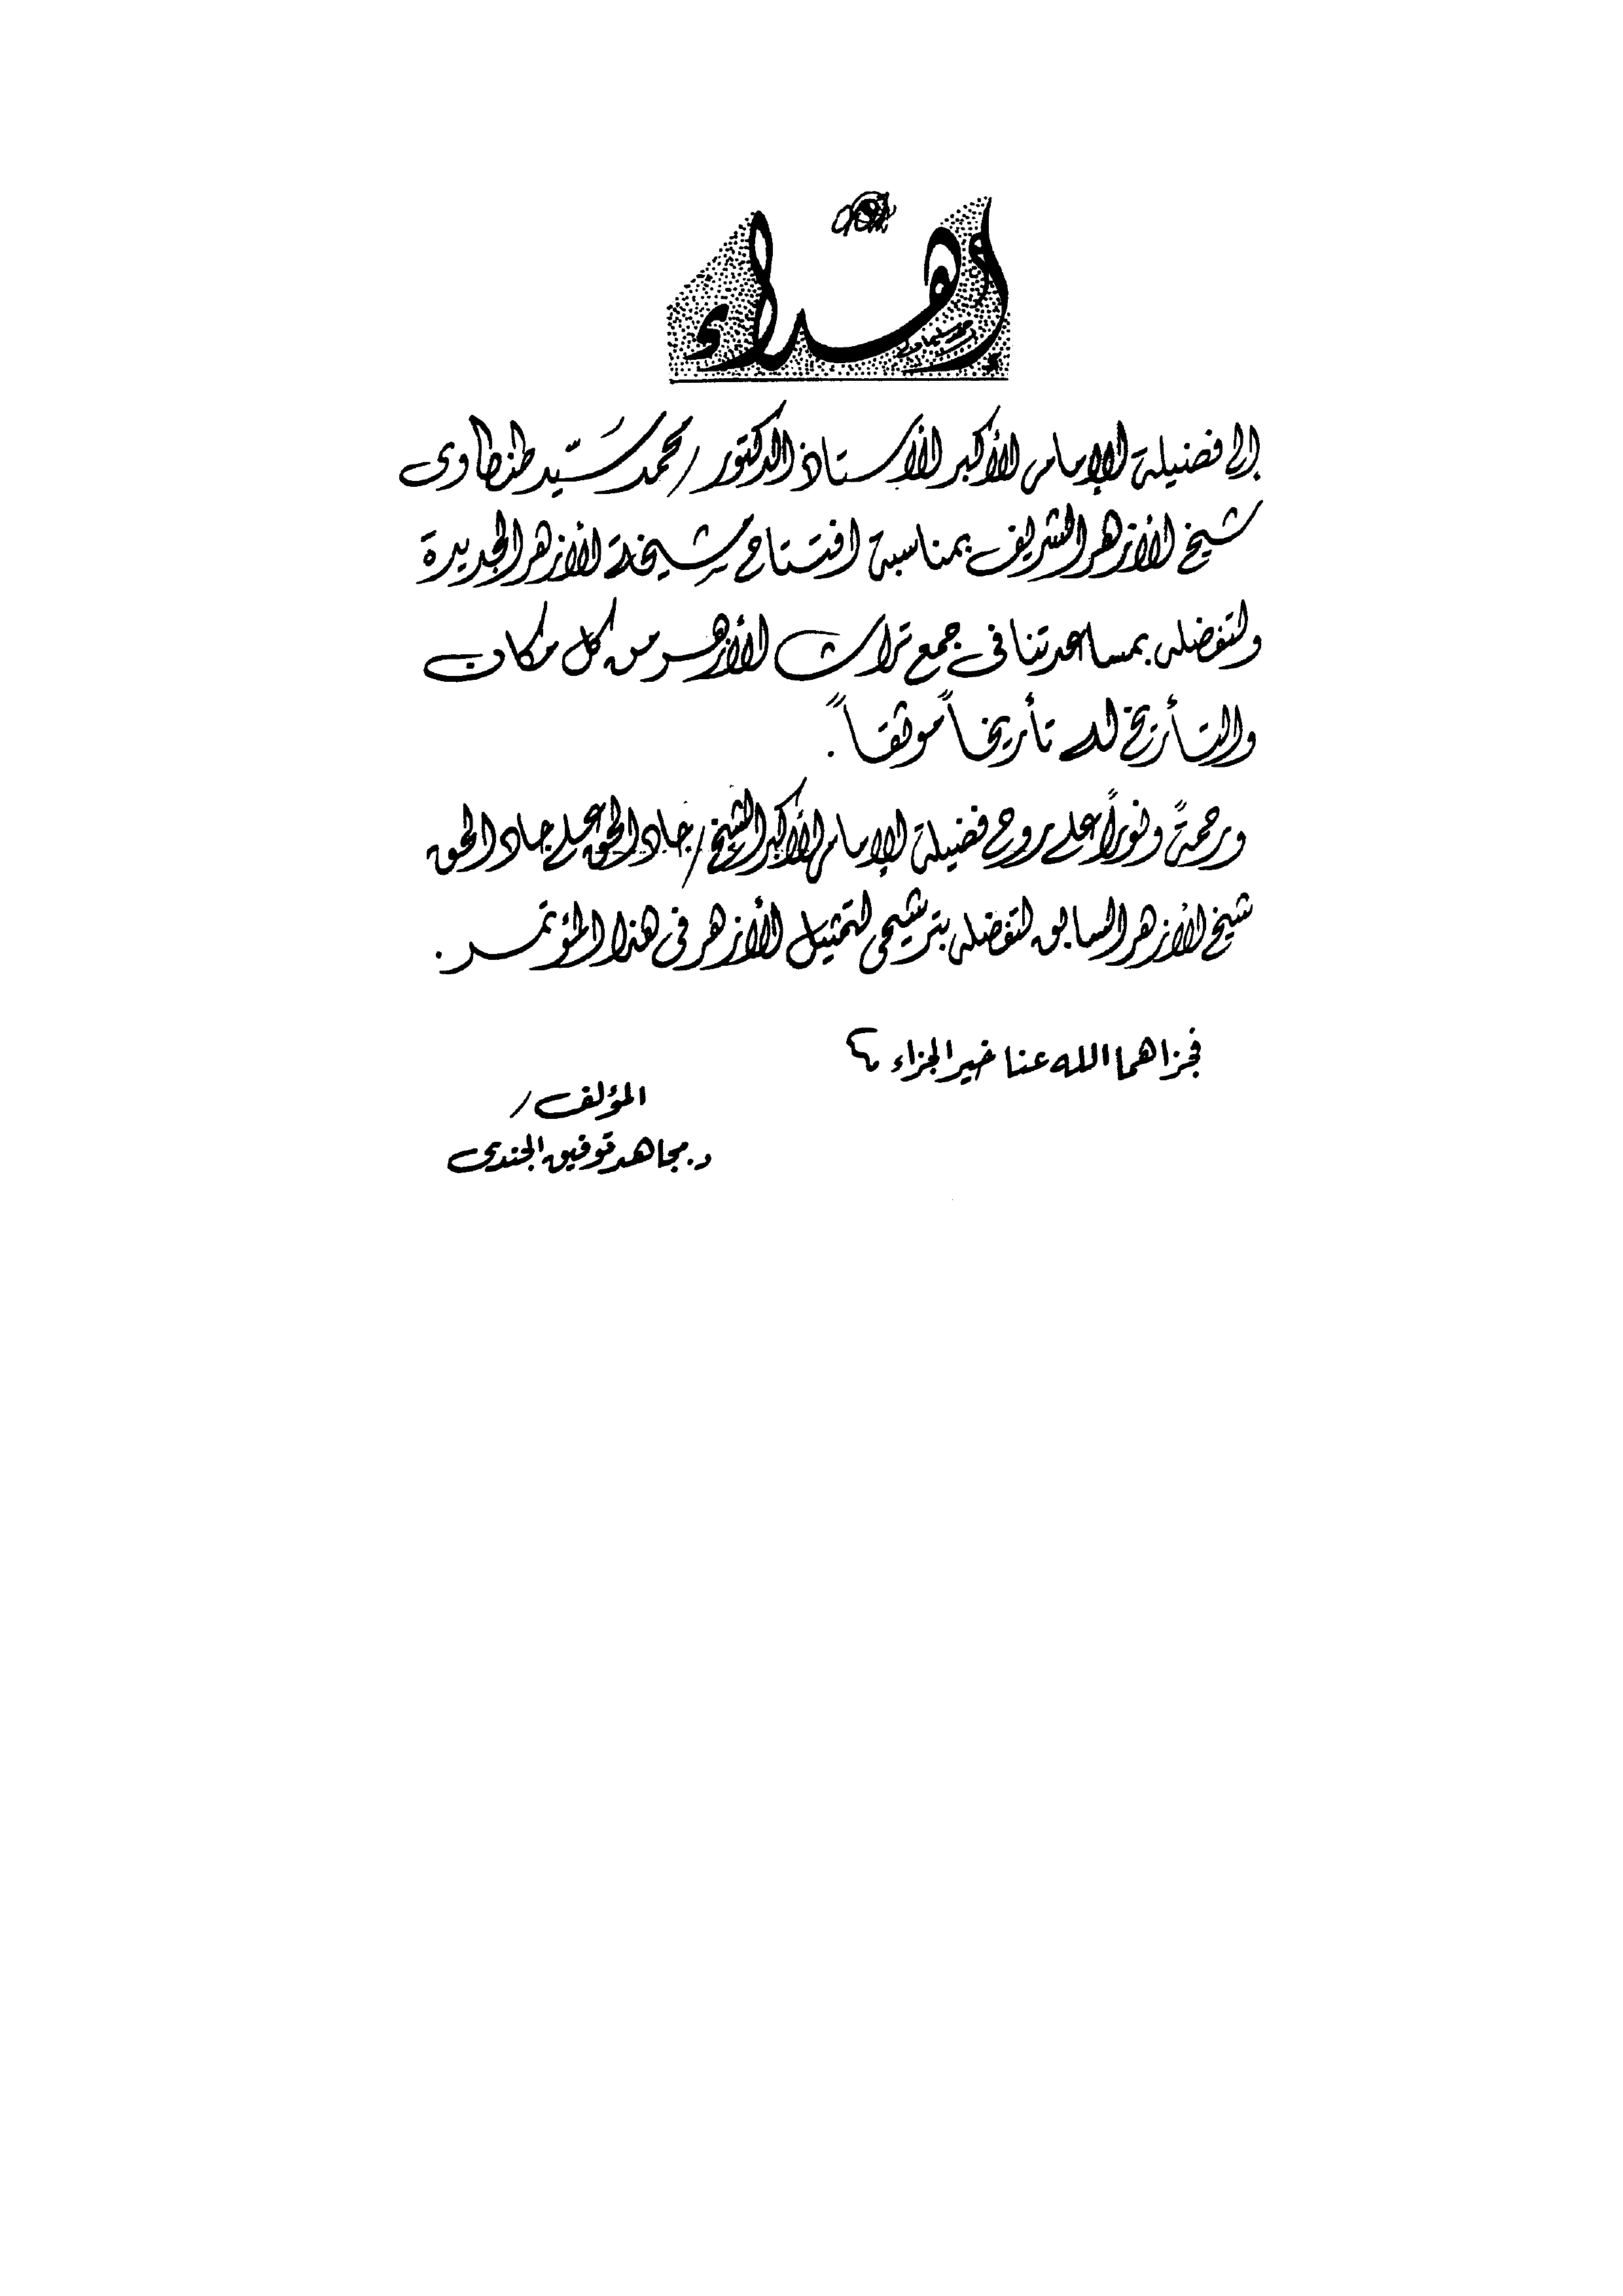 إهداء
إلى فضيلة الإمام الأكبر الأستاذ الدكتور / محمد سَيّد طنطاوى
شيخ الأزهر الشريف بمناسبة افتتاح مشيخة الأزهر الجديدة
ولتفضله بمساعدتنا فى جمع تراث الأزهر من كل مكان
والتأريخ له تأريخاً موثقاً .
ورحمةً ونوراً على روح فضيلة الإمام الأكبر الشيخ / جاد الحق على جاد الحق
شيخ الأزهر السابق لتفضله بترشيحى لتمثيل الأزهر فى هذا المؤتمر .
فجزاهما الله عنا خير الجزاء
المؤلف /
د. مجاهد توفيق الجندى